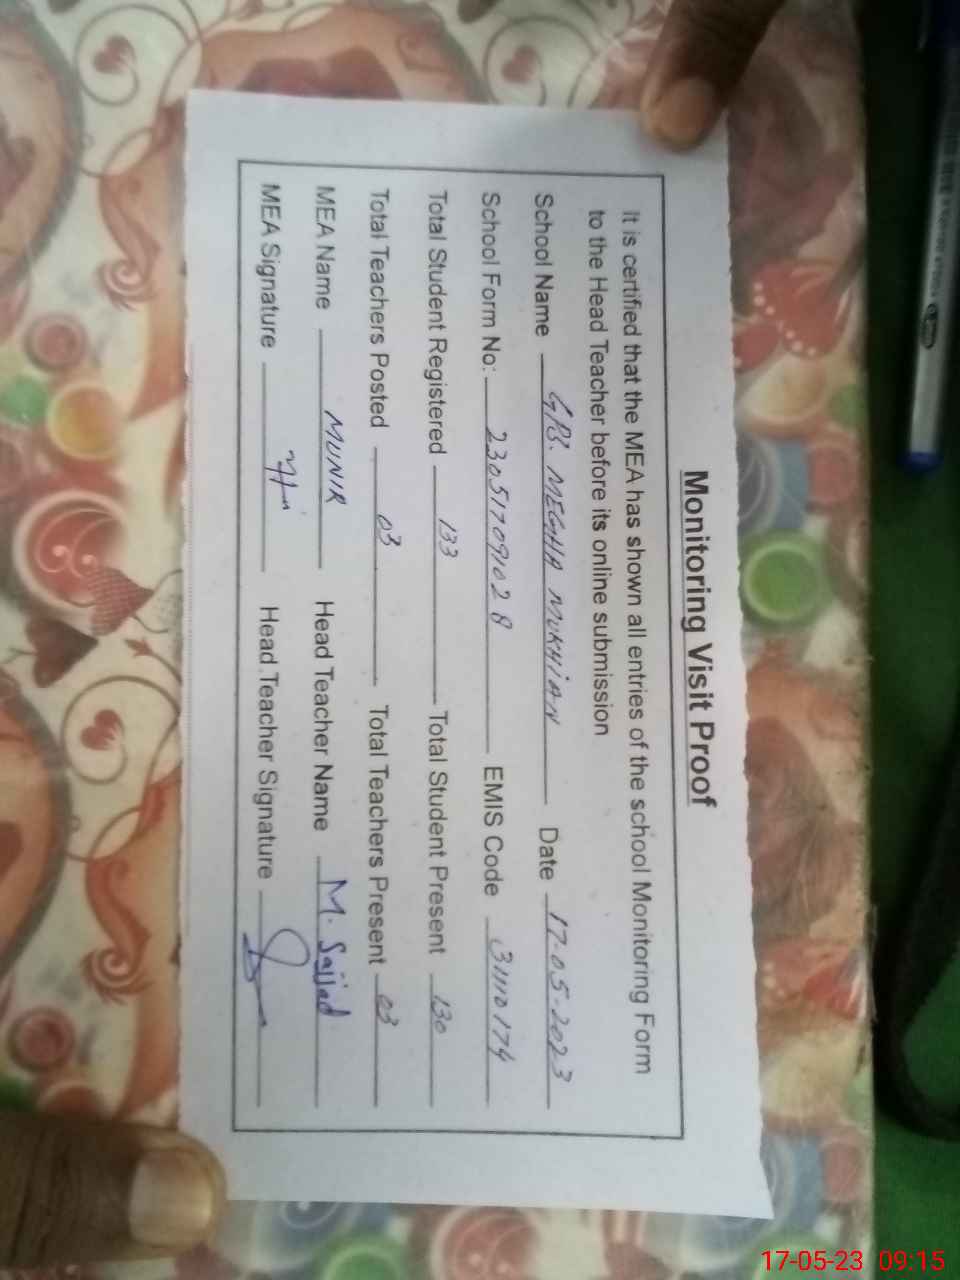 Monitoring Visit Proof
It is certified that the MEA has shown all entries of the school Monitoring Form
to the Head Teacher before its online submission
School Name GPS. MEGHA MUKHIAN Date 17-05-2023
School Form No: 230517091028 EMIS Code 31110174
Total Student Registered 133 Total Student Present 130
Total Teachers Posted 03 Total Teachers Present 03
MEA Name MUNIR Head Teacher Name M. Sajjad
MEA Signature Head Teacher Signature
17-05-23 09:15